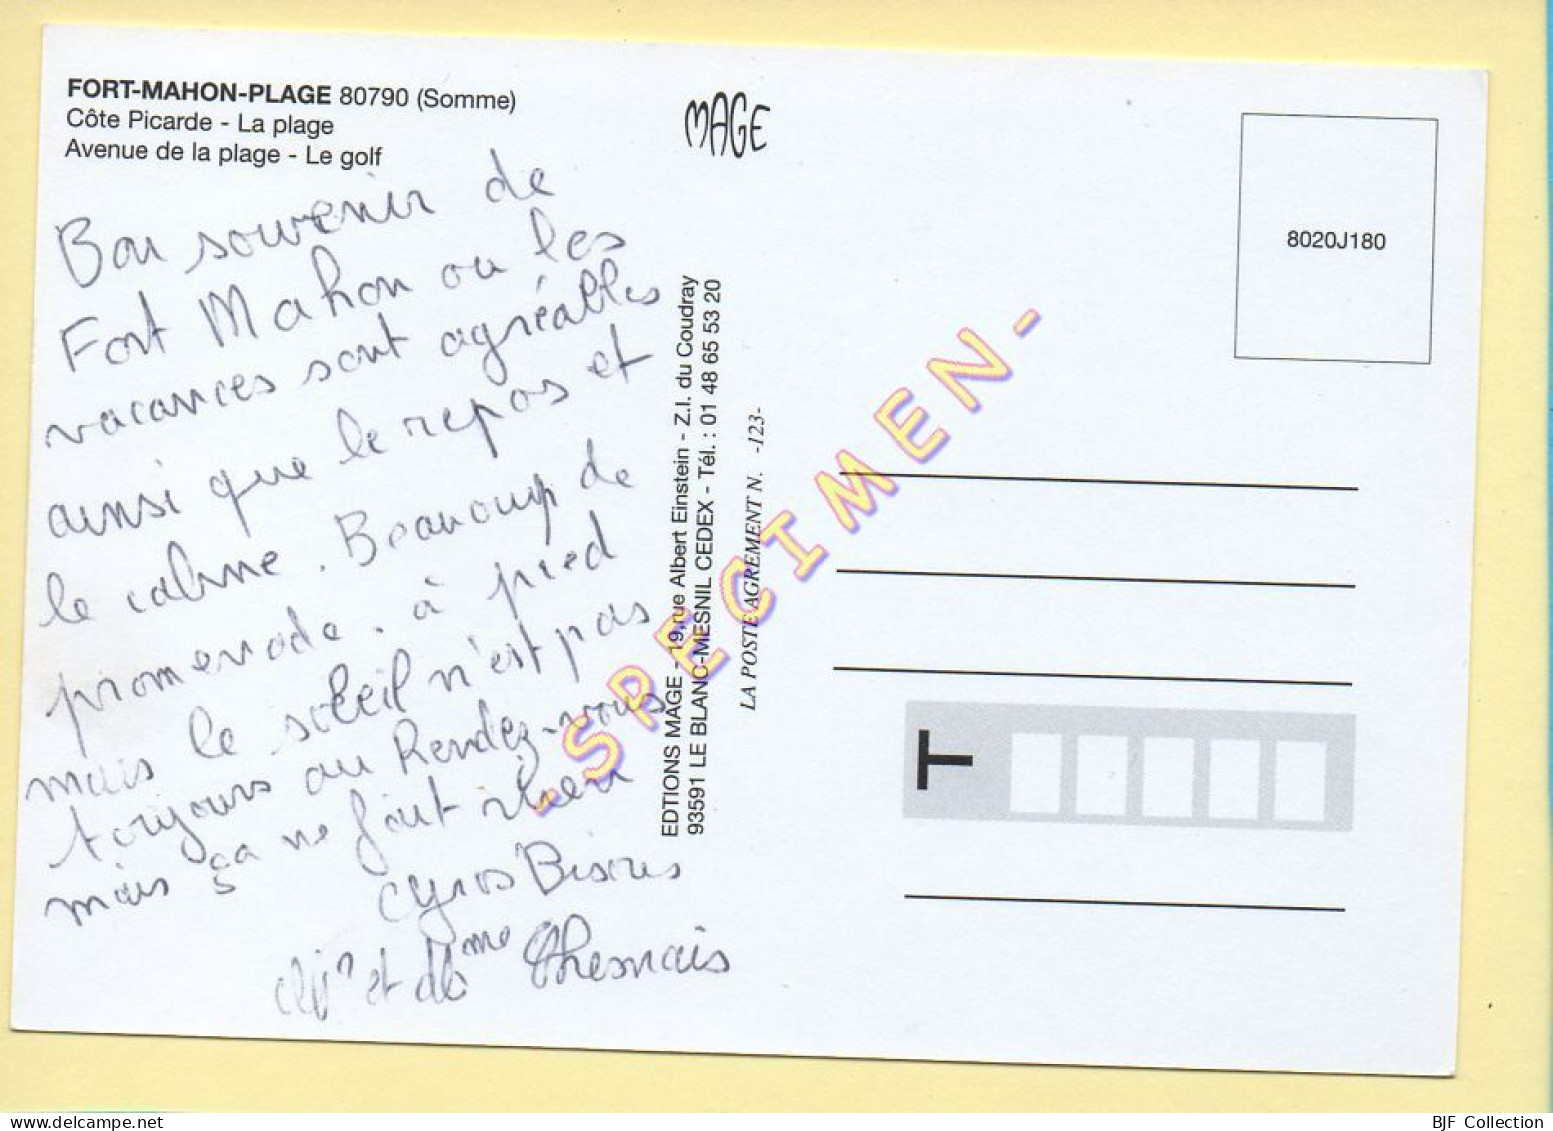 FORT-MAHON-PLAGE 80790 (Somme)
Côte Picarde - La plage
Avenue de la plage - Le golf
MAGE
8020J180
Bon souvenir de
Fort Mahon ou les
vacances sont agréables
ainsi que le repos et
le calme. Beaucoup de
promenade. à pied
mais le soleil n'est pas
toujours au Rendez-vous
mais ça ne fait rien
Gros Bisous
et Mme Chesnais
EDTIONS MAGE - 19,rue Albert Einstein - Z.I. du Coudray
93591 LE BLANC-MESNIL CEDEX - Tél. : 01 48 65 53 20
LA POSTE AGREMENT N. -123-
-SPECIMEN-
T
BJF Collection